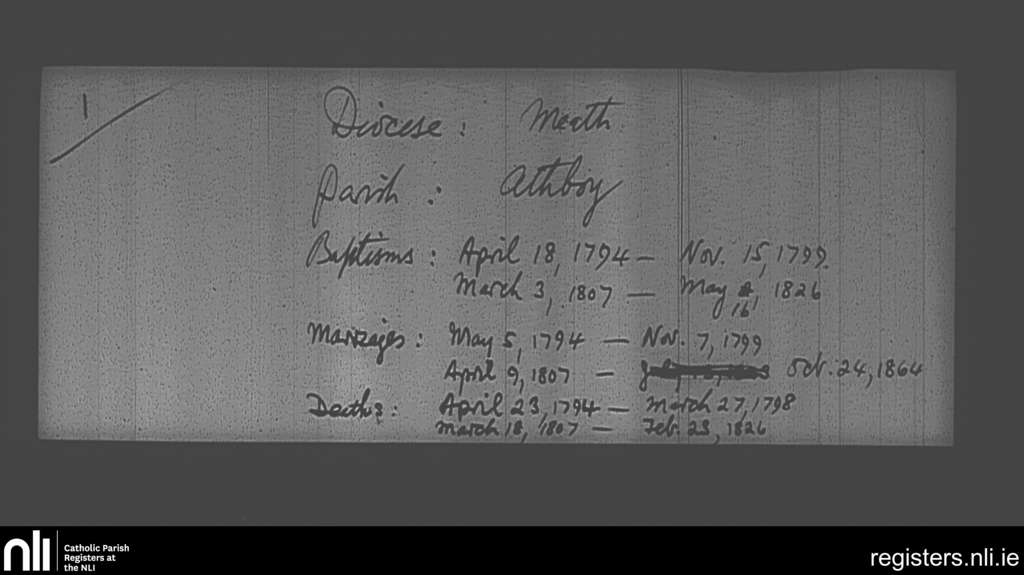 1
Diocese: Meath
Parish: Athboy
Baptisms: April 18, 1794 — Nov. 15, 1799.
March 3, 1807 — May 16, 1826
Marriages: May 5, 1794 — Nov. 7, 1799
April 9, 1807 — Oct. 24, 1864
Deaths: April 23, 1794 — March 27, 1798
March 18, 1807 — Feb. 23, 1826
nli
Catholic Parish
Registers at
the NLI
registers.nli.ie